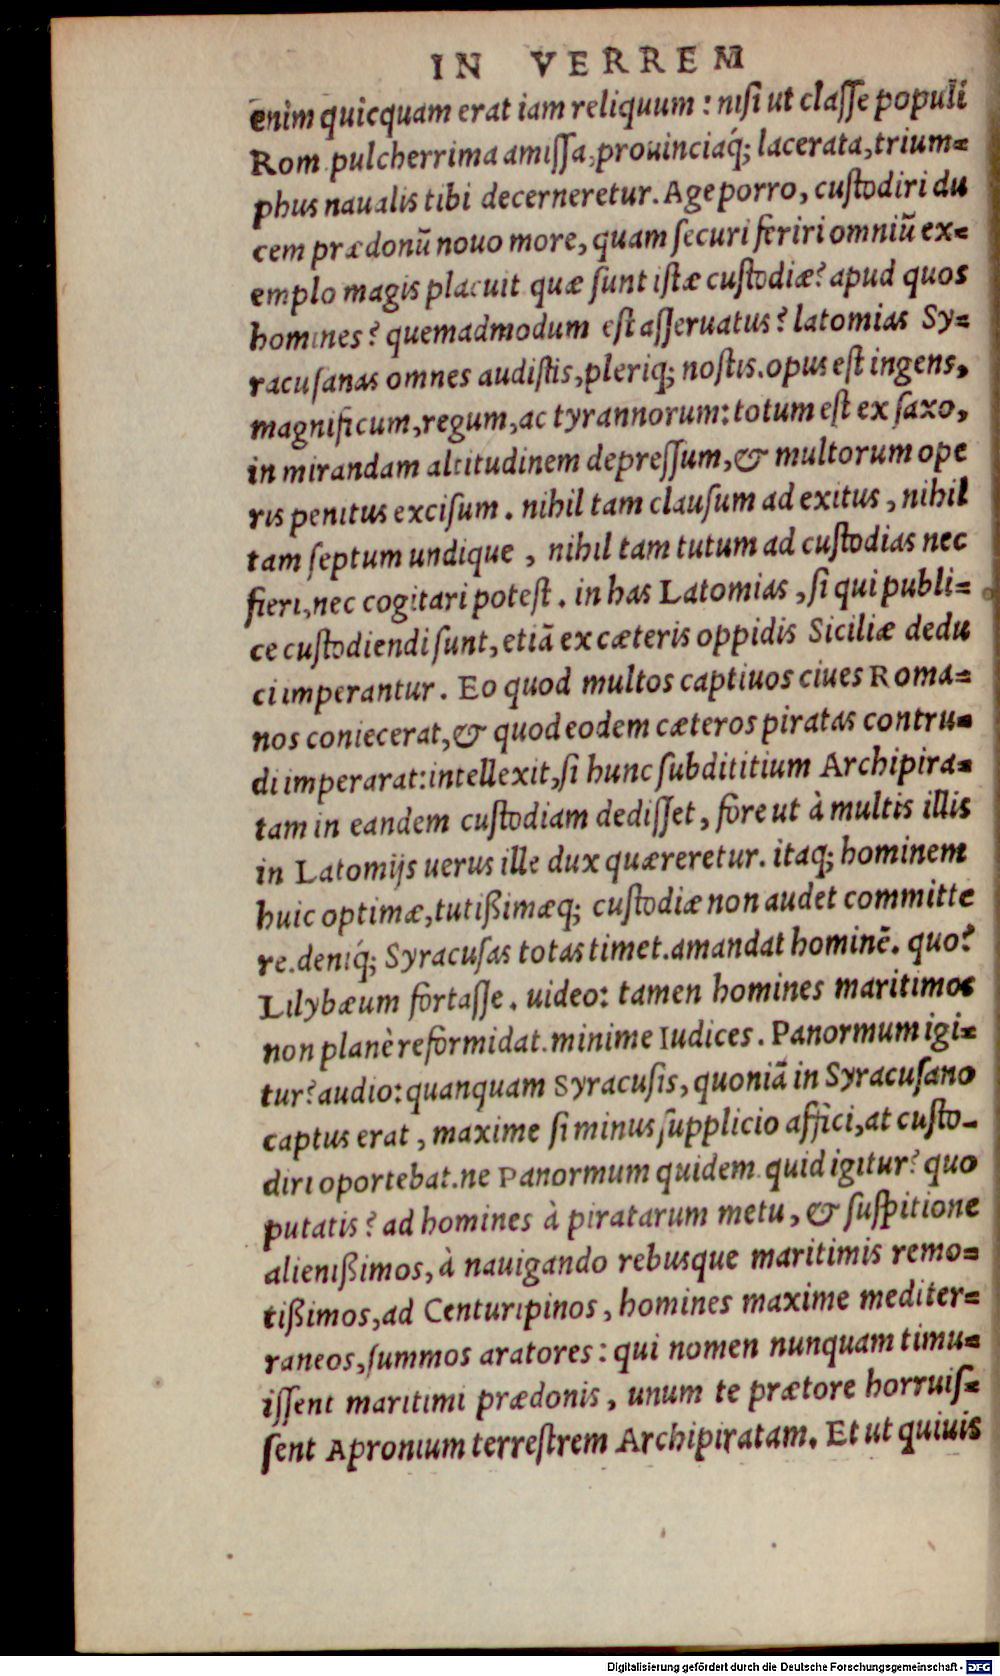 IN VERREM
enim quicquam erat iam reliquum : nisi ut classe populi
Rom. pulcherrima amissa, prouinciaq́; lacerata, trium=
phus naualis tibi decerneretur. Age porro, custodiri du
cem prædonũ nouo more, quam securi feriri omniũ ex=
emplo magis placuit. quæ sunt istæ custodiæ? apud quos
homines? quemadmodum est asseruatus? latomias Sy=
racusanas omnes audistis, pleriq; nostis. opus est ingens,
magnificum, regum, ac tyrannorum: totum est ex saxo,
in mirandam altitudinem depressum, & multorum ope
ris penitus excisum. nihil tam clausum ad exitus, nihil
tam septum undique, nihil tam tutum ad custodias nec
fieri, nec cogitari potest. in has Latomias, si qui publi=
ce custodiendi sunt, etiã ex cæteris oppidis Siciliæ dedu
ci imperantur. Eo quod multos captiuos ciues Roma=
nos coniecerat, & quod eodem cæteros piratas contru=
di imperarat: intellexit, si hunc subdititium Archipira=
tam in eandem custodiam dedisset, fore ut à multis illis
in Latomijs uerus ille dux quæreretur. itaq; hominem
huic optimæ, tutißimæq; custodiæ non audet committe
re. deniq́; Syracusas totas timet. amandat hominẽ. quo?
Lilybæum fortasse. uideo: tamen homines maritimos
non planè reformidat. minime Iudices. Panormum igi=
tur? audio: quanquam Syracusis, quoniã in Syracusano
captus erat, maxime si minus supplicio affici, at custo-
diri oportebat. ne Panormum quidem. quid igitur? quo
putatis? ad homines à piratarum metu, & suspitione
alienißimos, à nauigando rebusque maritimis remo=
tißimos, ad Centuripinos, homines maxime mediter=
raneos, summos aratores: qui nomen nunquam timu=
issent maritimi prædonis, unum te prætore horruis=
sent Apronium terrestrem Archipiratam. Et ut quiuis
Digitalisierung gefördert durch die Deutsche Forschungsgemeinschaft - DFG